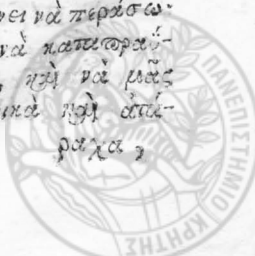 νει νὰ περάσω.
νὰ καταπραΰ-
, καὶ νὰ μᾶς
ικὰ καὶ ἀτά-
ραχα,
ΠΑΝΕΠΙΣΤΗΜΙΟ ΚΡΗΤΗΣ